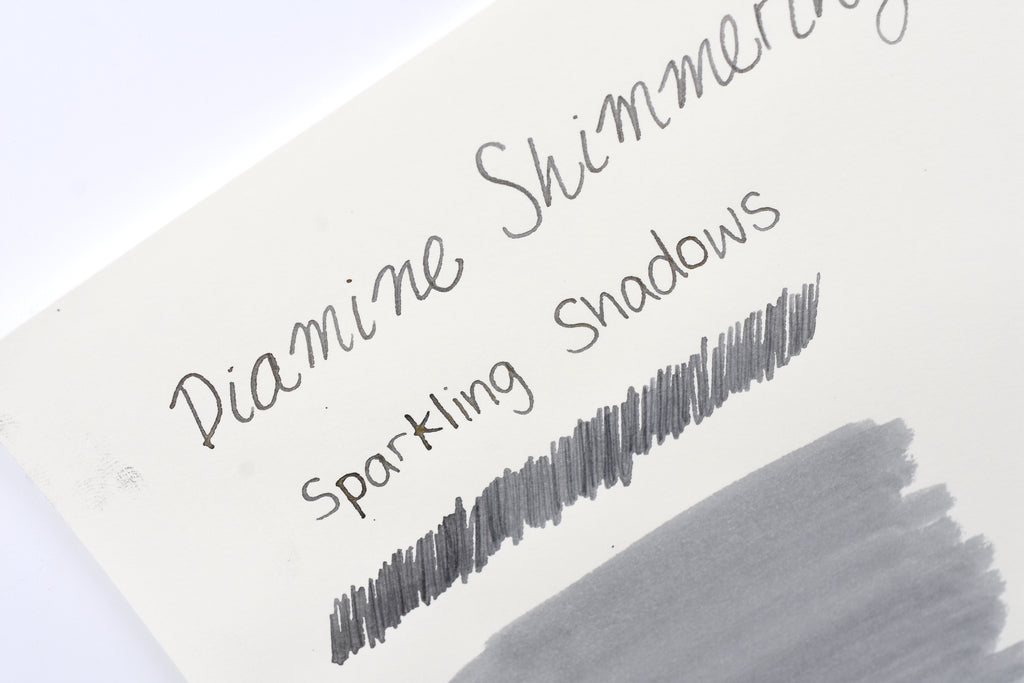 Diamine Shimmering
Sparkling Shadows